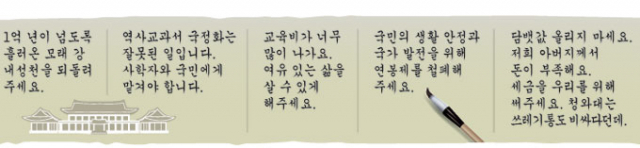 1억 년이 넘도록
흘러온 모래 강
내성천을 되돌려
주세요.
역사교과서 국정화는
잘못된 일입니다.
사학자와 국민에게
맡겨야 합니다.
교육비가 너무
많이 나가요.
여유 있는 삶을
살 수 있게
해주세요.
국민의 생활 안정과
국가 발전을 위해
연봉제를 철폐해
주세요.
담뱃값 올리지 마세요.
저희 아버지께서
돈이 부족해요.
세금을 우리를 위해
써주세요. 청와대는
쓰레기통도 비싸다던데.